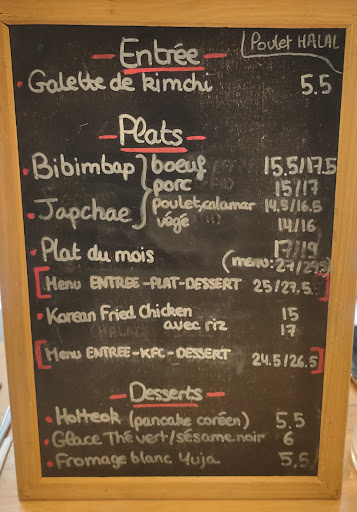 Entrée
Poulet HALAL
Galette de kimchi 5.5
Plats
Bibimbap boeuf 15.5/17.5
porc 15/17
Japchae poulet, calamar 14.5/16.5
végé 14/16
Plat du mois 17/19
(menu: 27/29.5)
Menu ENTREE-PLAT-DESSERT 25/27.5
Korean Fried Chicken 15
avec riz 17
Menu ENTREE-KFC-DESSERT 24.5/26.5
Desserts
Hotteok (pancake coréen) 5.5
Glace Thé vert/sésame noir 6
Fromage blanc Yuja 5.5